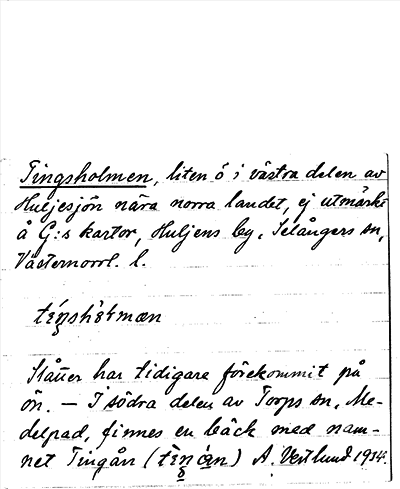 Tingsholmen, liten ö i västra delen av
Huljesjön nära norra landet, ej utmärkt
å G:s kartor, Huljens by, Selångers sn,
Västernorrl. l.
Slåtter har tidigare förekommit på
ön. — I södra delen av Torps sn, Me-
delpad, finnes en bäck med nam-
net Tingån ( ) A. Vestlund 1934.